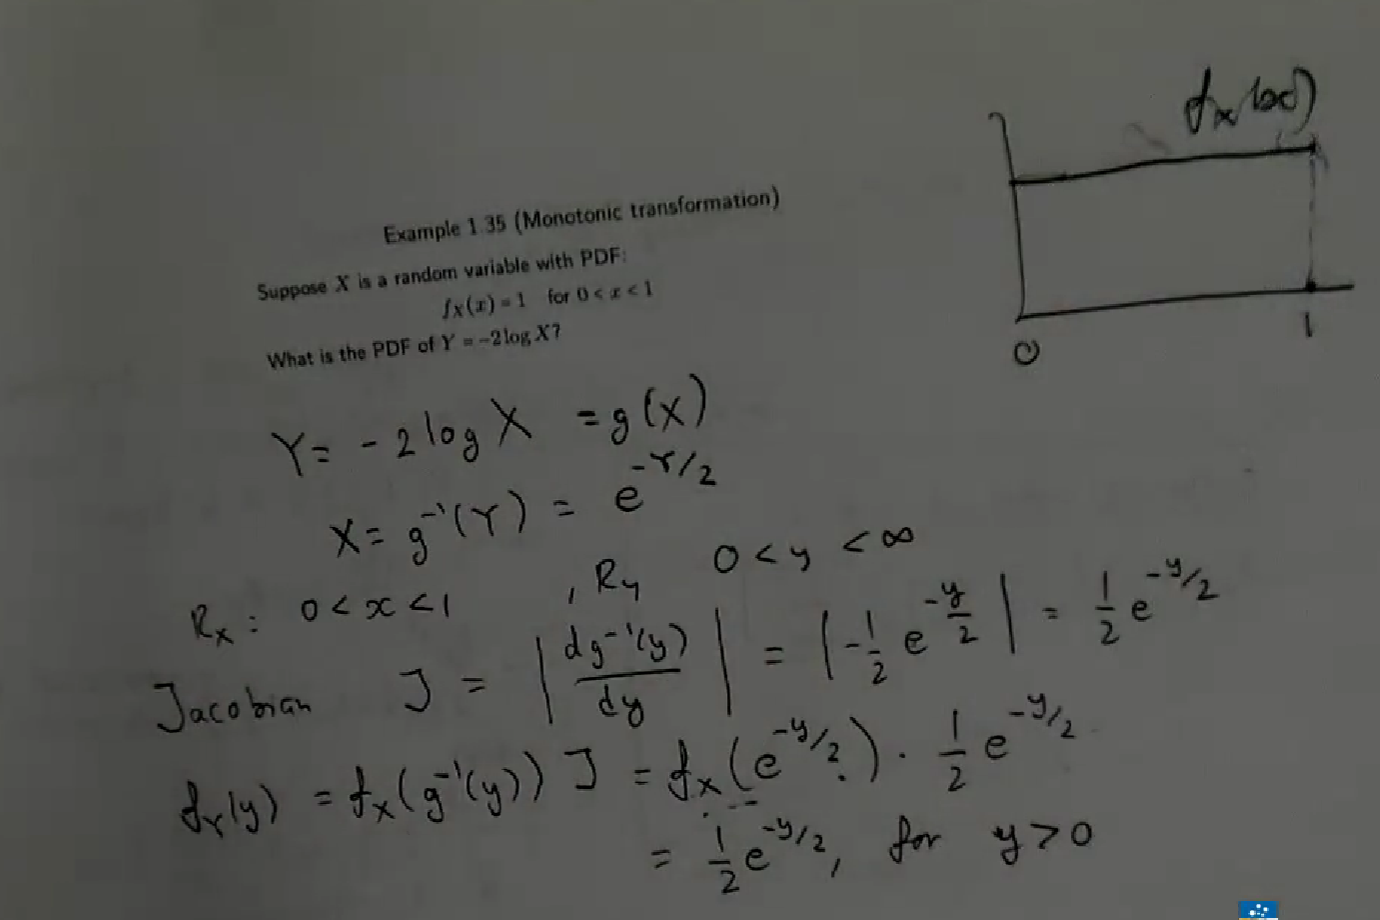 f_X(x)
0
1
Example 1.35 (Monotonic transformation)
Suppose X is a random variable with PDF:
f_X(x) = 1 for 0 < x < 1
What is the PDF of Y = -2 log X?
Y = -2 log X = g(X)
X = g⁻¹(Y) = e^{-Y/2}
R_X: 0 < x < 1 , R_Y 0 < y < ∞
Jacobian J = | dg⁻¹(y) / dy | = | -1/2 e^{-y/2} | = 1/2 e^{-y/2}
f_Y(y) = f_X(g⁻¹(y)) J = f_X(e^{-y/2}) · 1/2 e^{-y/2}
= 1/2 e^{-y/2}, for y > 0